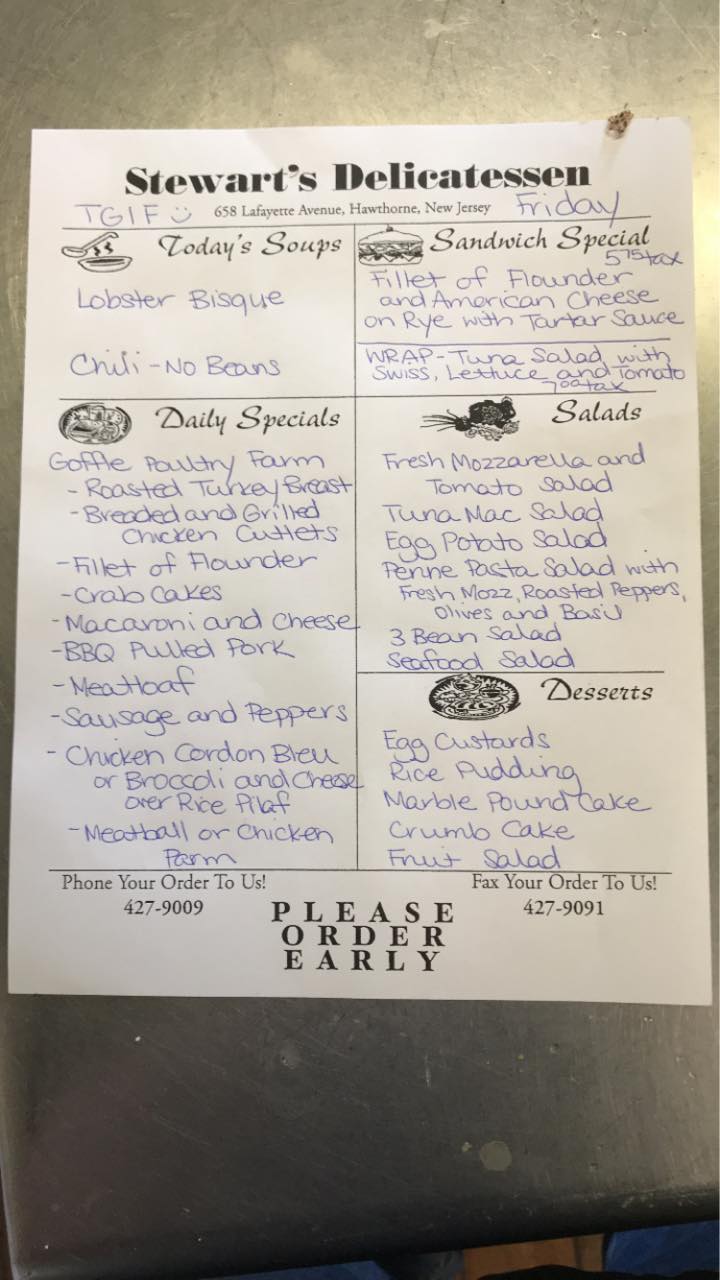 Stewart's Delicatessen
TGIF 658 Lafayette Avenue, Hawthorne, New Jersey Friday
Today's Soups
Lobster Bisque
Chili - No Beans
Sandwich Special
5.75+tax
Fillet of Flounder
and American Cheese
on Rye with Tartar Sauce
WRAP - Tuna Salad with
Swiss, Lettuce and Tomato
7.00+tax
Daily Specials
Goffle Poultry Farm
- Roasted Turkey Breast
- Breaded and Grilled
Chicken Cutlets
- Fillet of Flounder
- Crab Cakes
- Macaroni and Cheese
- BBQ Pulled Pork
- Meatloaf
- Sausage and Peppers
- Chicken Cordon Bleu
or Broccoli and Cheese
over Rice Pilaf
- Meatball or Chicken
Parm
Salads
Fresh Mozzarella and
Tomato Salad
Tuna Mac Salad
Egg Potato Salad
Penne Pasta Salad with
Fresh Mozz, Roasted Peppers,
Olives and Basil
3 Bean Salad
Seafood Salad
Desserts
Egg Custards
Rice Pudding
Marble Pound Cake
Crumb Cake
Fruit Salad
Phone Your Order To Us!
427-9009
PLEASE
ORDER
EARLY
Fax Your Order To Us!
427-9091